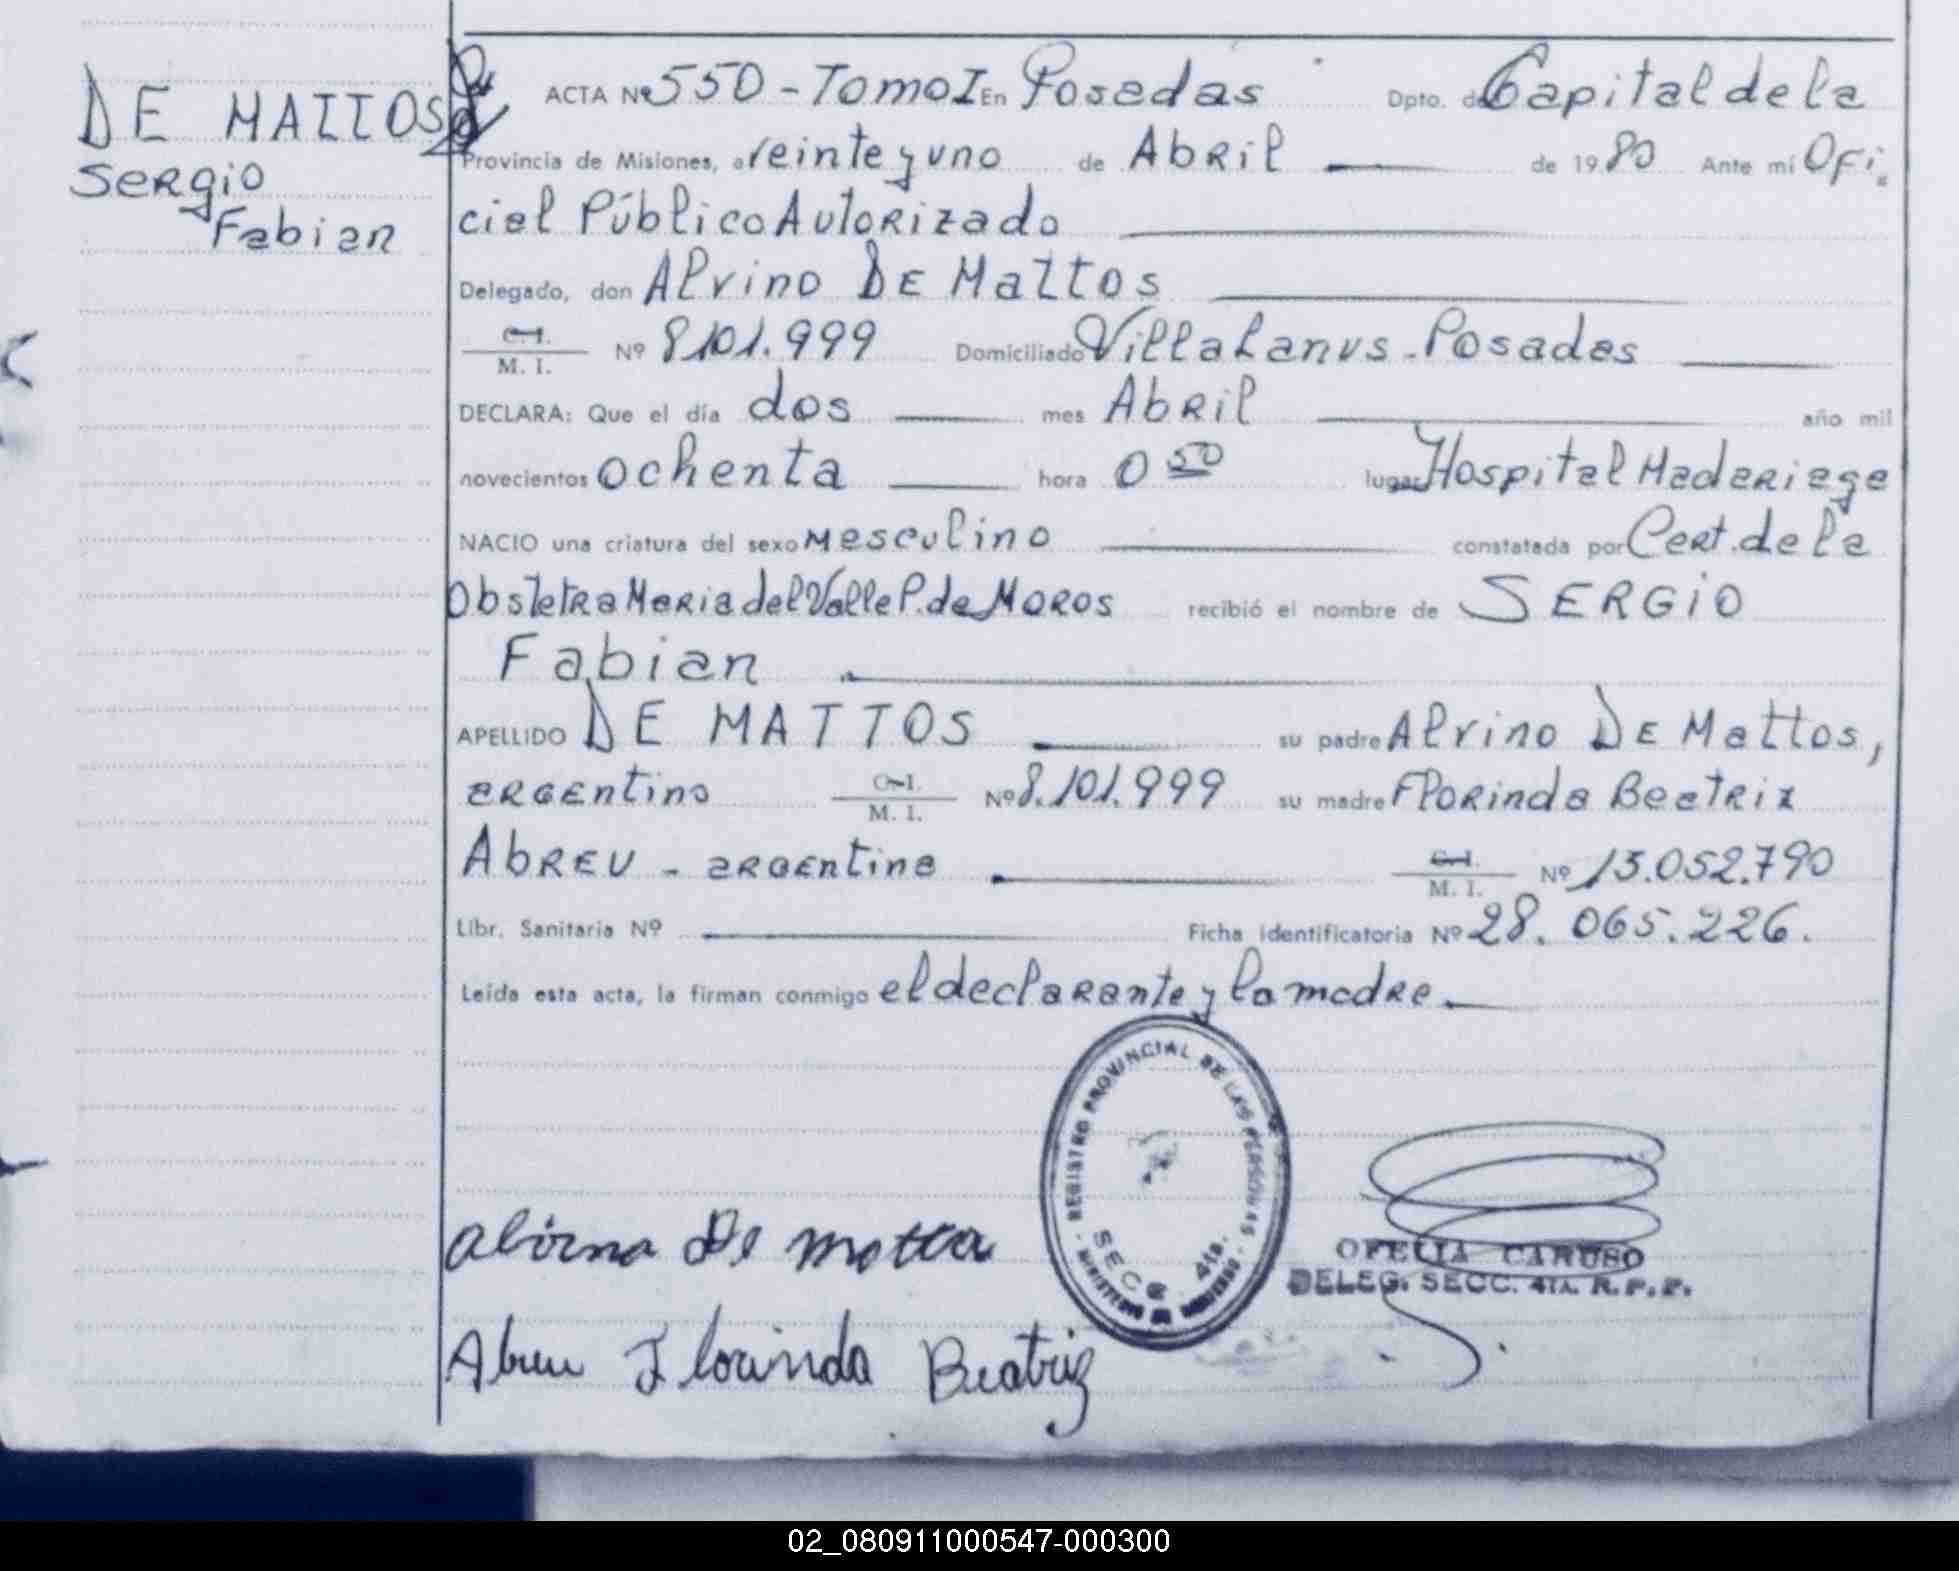 DE MATTOS
Sergio
Fabian
ACTA Nº 550 - Tomo I En Posadas Dpto. de Capital de la
Provincia de Misiones, a veinte y uno de Abril de 1980 Ante mí Ofi
cial Público Autorizado
Delegado, don Alvino De Mattos
C. I.
M. I. Nº 8101.999 Domiciliado Villa Lanus - Posadas
DECLARA: Que el día dos mes Abril año mil
novecientos ochenta hora 0 50 lugar Hospital Madariaga
NACIO una criatura del sexo masculino constatada por Cert. de la
Obstetra Maria del Valle P. de Moros recibió el nombre de SERGIO
Fabian
APELLIDO DE MATTOS su padre Alvino De Mattos,
argentino C. I. M. I. Nº 8.101.999 su madre Florinda Beatriz
Abreu - argentina C. I. M. I. Nº 13.052.790
Libr. Sanitaria Nº Ficha Identificatoria Nº 28.065.226.
Leída esta acta, la firman conmigo el declarante y la madre
REGISTRO PROVINCIAL DE LAS PERSONAS
MINISTERIO DE GOBIERNO
SECC. 4ta.
De motta
OFELIA CARUSO
DELEG. SECC. 4TA. R.P.P.
Abreu Florinda Beatriz
02_080911000547-000300